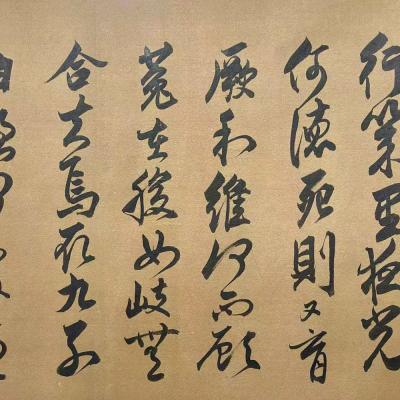 行幾里夜光
何德死則又育
厥利維何而顧
菟在腹女岐無
合夫焉取九子